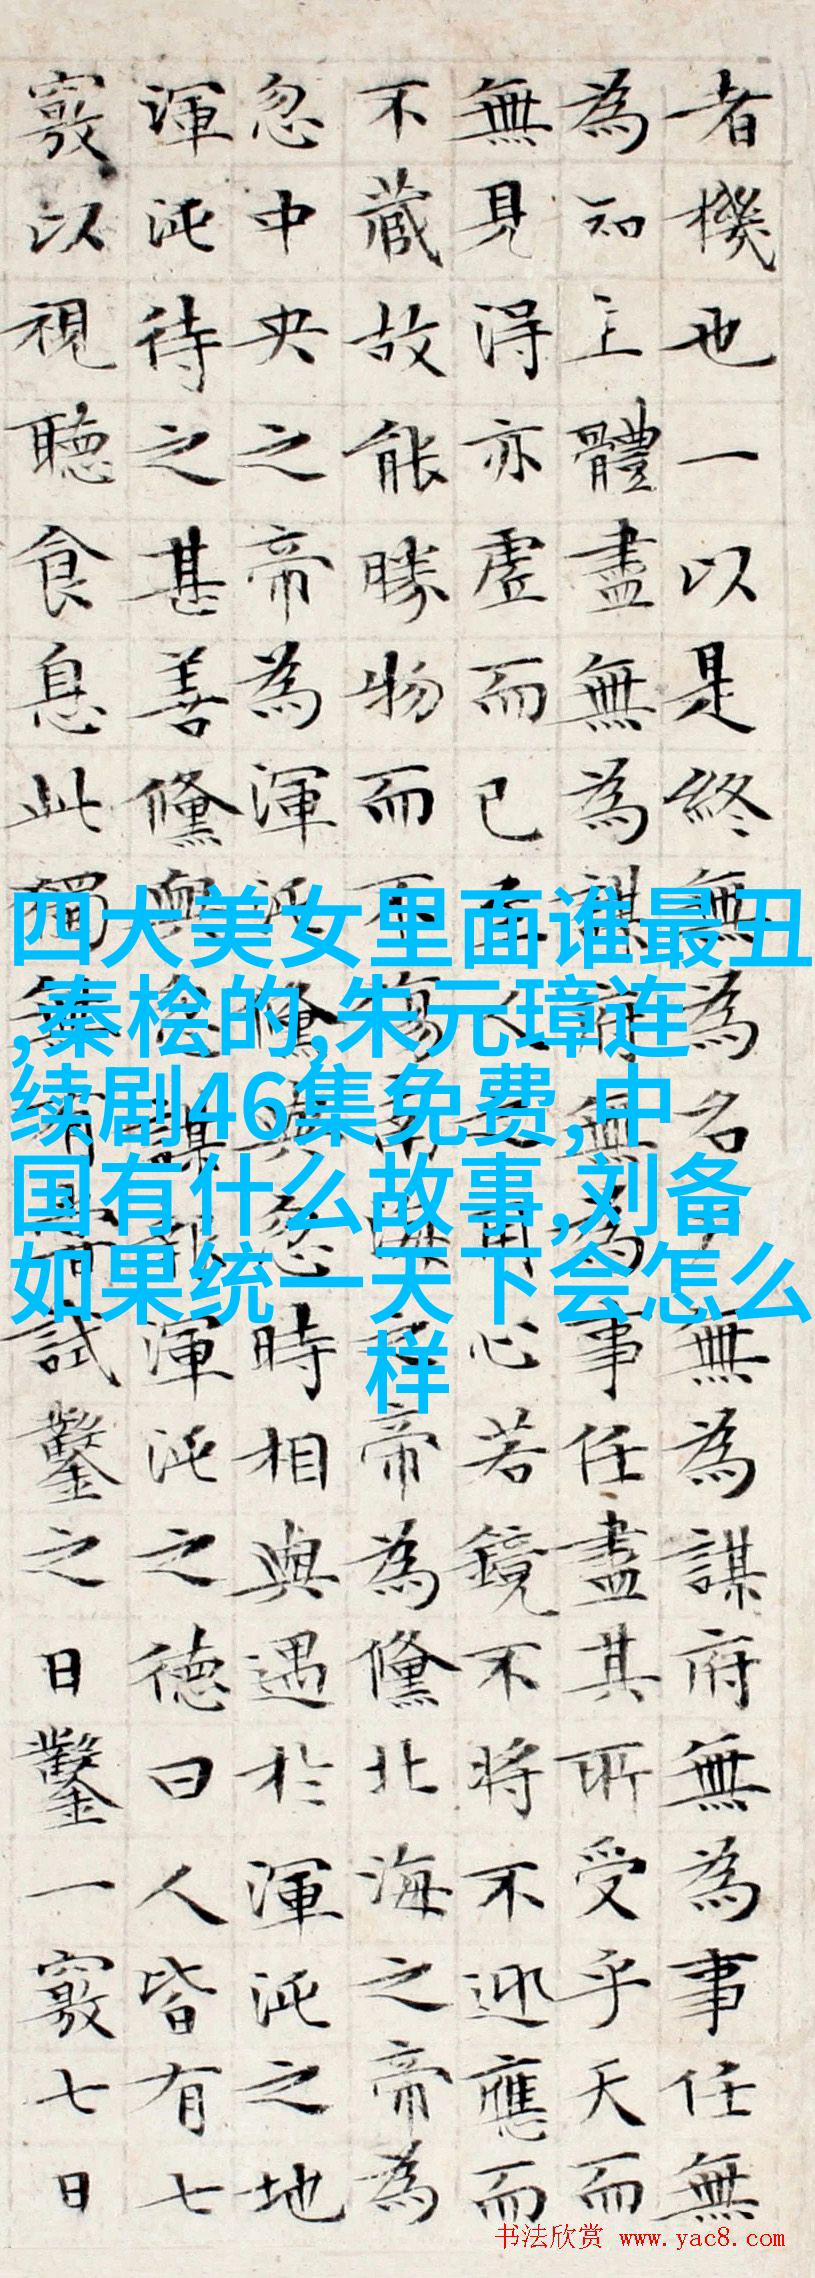 者機也一以是終無為名無為謀府無為事任無
為知主體盡無為謀府無為事任盡其所受乎天而
無見得亦虛而已至人之用心若鏡不將不迎應而
不藏故能勝物而不傷南海之帝為儵北海之帝為
忽中央之帝為渾沌儵與忽時相與遇於渾沌之地
渾沌待之甚善儵與忽謀報渾沌之德曰人皆有七
竅以視聽食息此獨無有嘗試鑿之日鑿一竅七日
四大美女里面谁最丑
,秦桧的,朱元璋连
续剧46集免费,中
国有什么故事,刘备
如果统一天下会怎么
样
书法欣赏 www.yac8.com